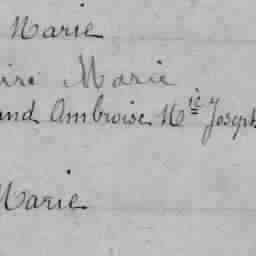 Marie
Marie
Ambroise Mie Joseph
Marie